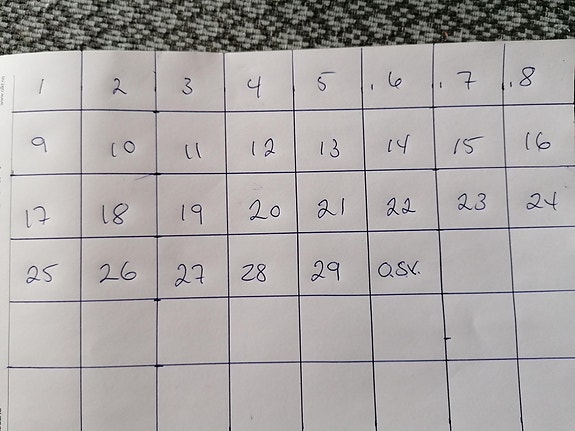 1 2 3 4 5 .6 .7 .8
9 10 11 12 13 14 15 16
17 18 19 20 21 22 23 24
25 26 27 28 29 osv.